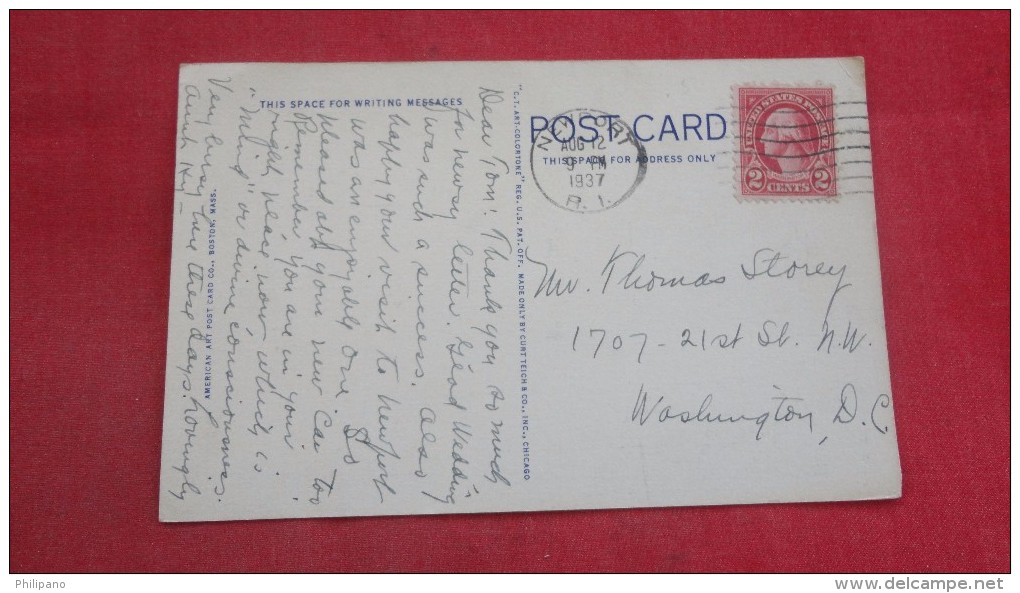 THIS SPACE FOR WRITING MESSAGES
Dear Tom! Thank you so much
for newsy letter. Glad Wedding
was such a success. Also
happy your visit to Newport
was an enjoyable one. So
pleased abt your new Car too
Remember you are in your
right place now which is
"Infling" or divine consciousness.
Very busy here these days. Lovingly
Aunt
"C.T. ART-COLORTONE" REG. U.S. PAT. OFF. MADE ONLY BY CURT TEICH & CO., INC., CHICAGO
AMERICAN ART POST CARD CO., BOSTON, MASS.
POST CARD
THIS SPACE FOR ADDRESS ONLY
NEWPORT
AUG 12
9 PM
1937
R. I.
UNITED STATES POSTAGE
2 CENTS 2
Mr. Thomas Storey
1707-21st St. N.W.
Washington, D.C.
Philipano
http://www.delcampe.net